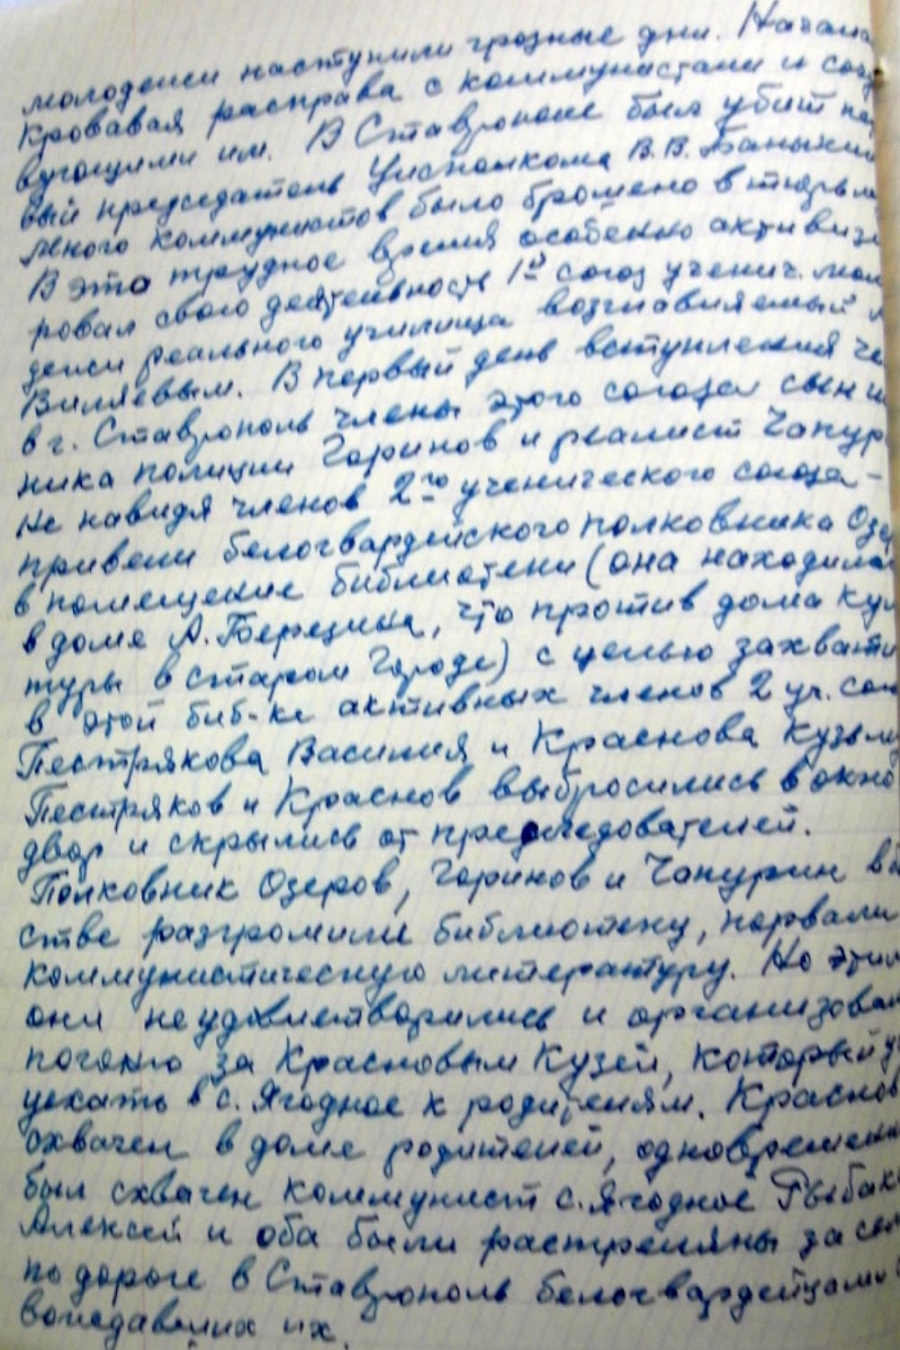 молодежи наступили грозные дни. Начала
Кровавая расправа с коммунистами и соч
вующими им. В Ставрополе был убит пер
вый председатель Уисполкома В.В. Баныкин
Много коммунистов было брошено в тюрьм
В это трудное время особенно активизи
ровал свою деятельность 1й союз ученич. мол
дежи реального училища возглавляемый
Виляевым. В первый день вступления че
в г. Ставрополь члены этого союза сын
ника полиции Горинов и реалист Чапур
не навидя членов 2го ученического союза -
привели белогвардейского полковника Озе
в помещение библиотеки (она находила
в доме А. Борецина, что против дома кул
туры в Старом Городе) с целью захвати
в этой биб-ке активных членов 2 уч. сою
Пестрякова Василия и Краснова Кузьм
Пестряков и Краснов выбросились в окно
двор и скрылись от преследователей.
Полковник Озеров, Горинов и Чапурин в б
стве разгромили библиотеку, порвали
коммунистическую литературу. Но этим
они неудовлетворились и организовал
погоню за Красновым Кузей, который у
уехать в с. Ягодное к родителям. Краснов
схвачен в доме родителей, одновременн
был схвачен коммунист с. Ягодное Рыбак
Алексей и оба были растреляны за сел
по дороге в Ставрополь белогвардейцами
их.